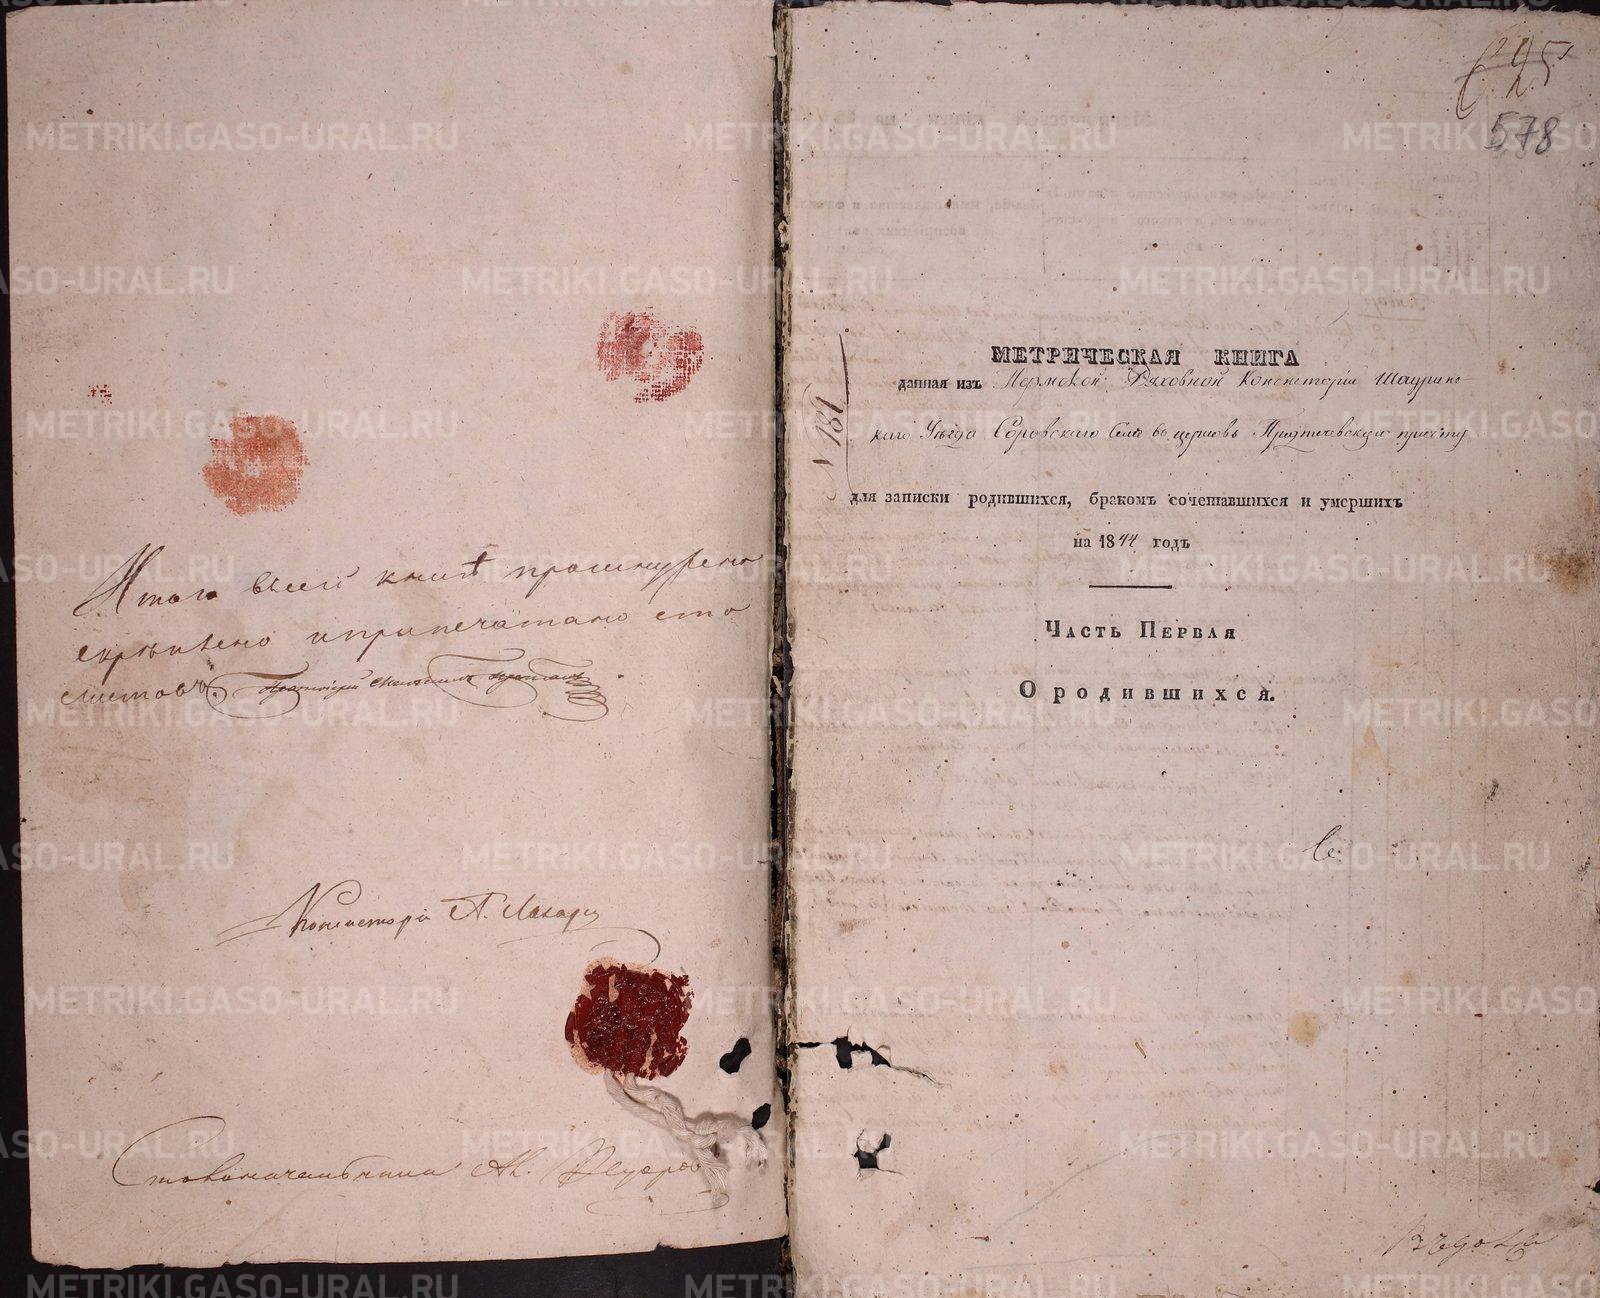 Итого въ сей книгѣ прошнурено
скрѣплено и припечатано сто
листовъ. Протоіерей
Консисторіи А.
Столоначальника
№ 181
578
МЕТРИЧЕСКАЯ КНИГА
данная изъ Пермской Духовной Консисторіи Шадринс-
каго Уѣзда Соровскаго Села въ церковь Предтечевскую причту
для записки родившихся, бракомъ сочетавшихся и умершихъ
на 1844 годъ
Часть Первая
О родившихся.
METRIKI.GASO-URAL.RU